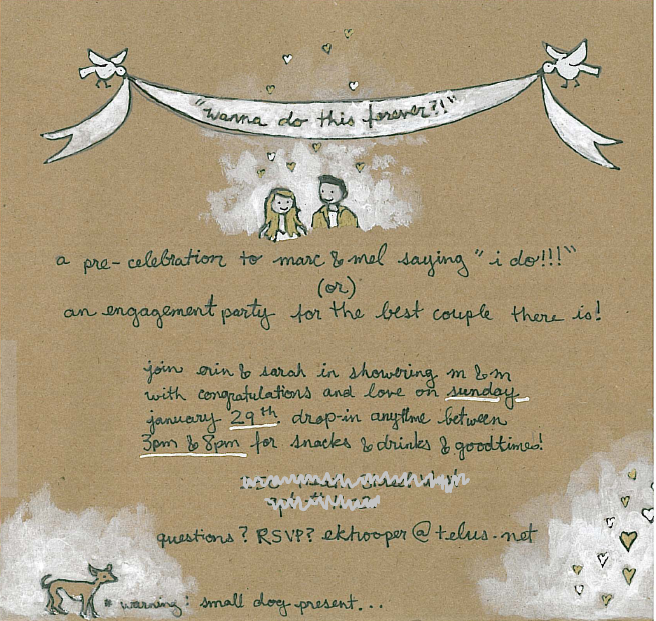 "wanna do this forever?!"
a pre-celebration to marc & mel saying "i do!!!"
(or)
an engagement party for the best couple there is!
join erin & sarah in showering m & m
with congratulations and love on sunday
january 29th drop-in anytime between
3pm & 8pm for snacks & drinks & goodtimes!
questions? RSVP? ekhooper@telus.net
* warning: small dog present...